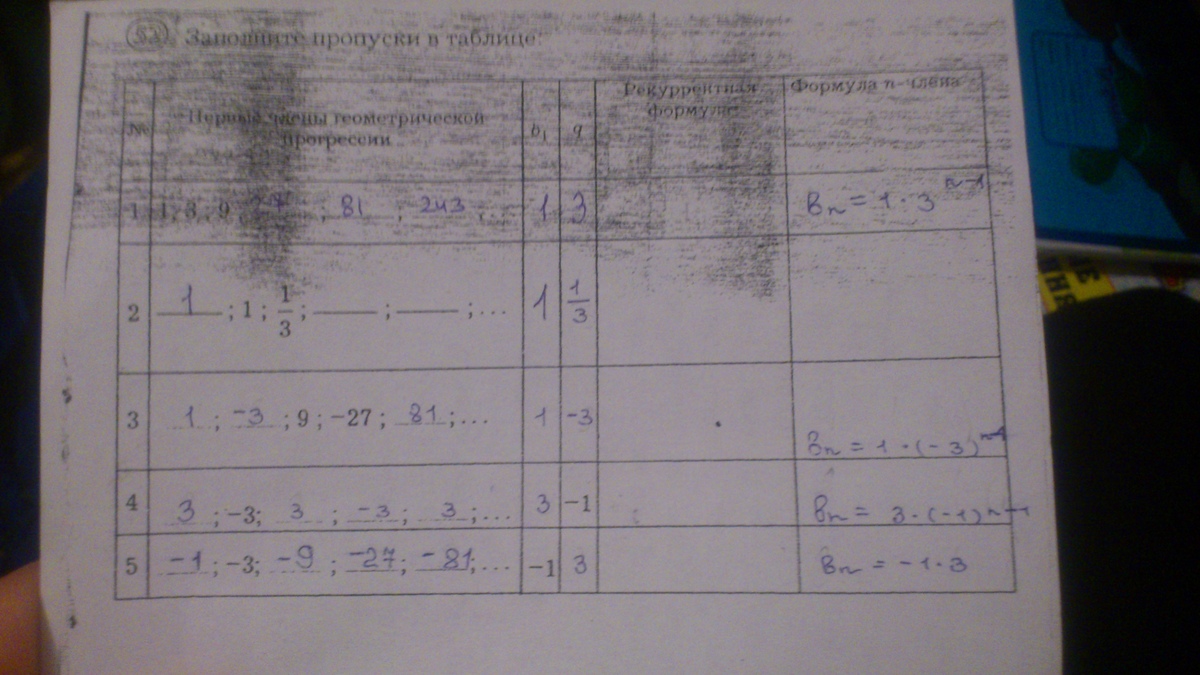 52. Заполните пропуски в таблице:
№ Первые члены геометрической прогрессии b₁ q Рекуррентная формула Формула n-члена
1 1; 3; 9; 27; 81; 243; ... 1 3 Bn = 1 · 3^n-1
2 1; 1; 1/3; ____; ____; ... 1 1/3
3 1; -3; 9; -27; 81; ... 1 -3 Bn = 1 · (-3)^n-1
4 3; -3; 3; -3; 3; ... 3 -1 Bn = 3 · (-1)^n-1
5 -1; -3; -9; -27; -81; ... -1 3 Bn = -1 · 3